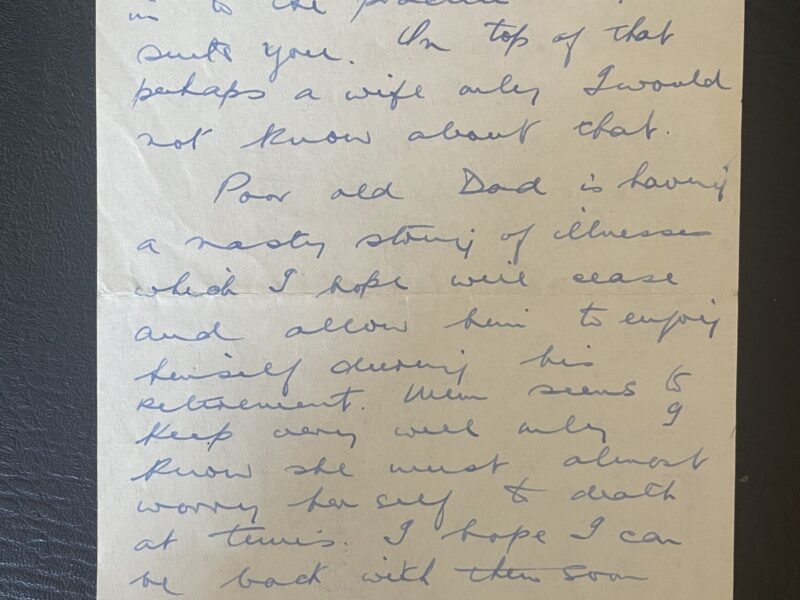 in to the
suits you. On top of that
perhaps a wife only I would
not know about that.
Poor old Dad is having
a nasty string of illnesses
which I hope will cease
and allow him to enjoy
himself during his
retirement. Mum seems to
keep very well only I
know she must almost
worry herself to death
at times. I hope I can
be back with them soon